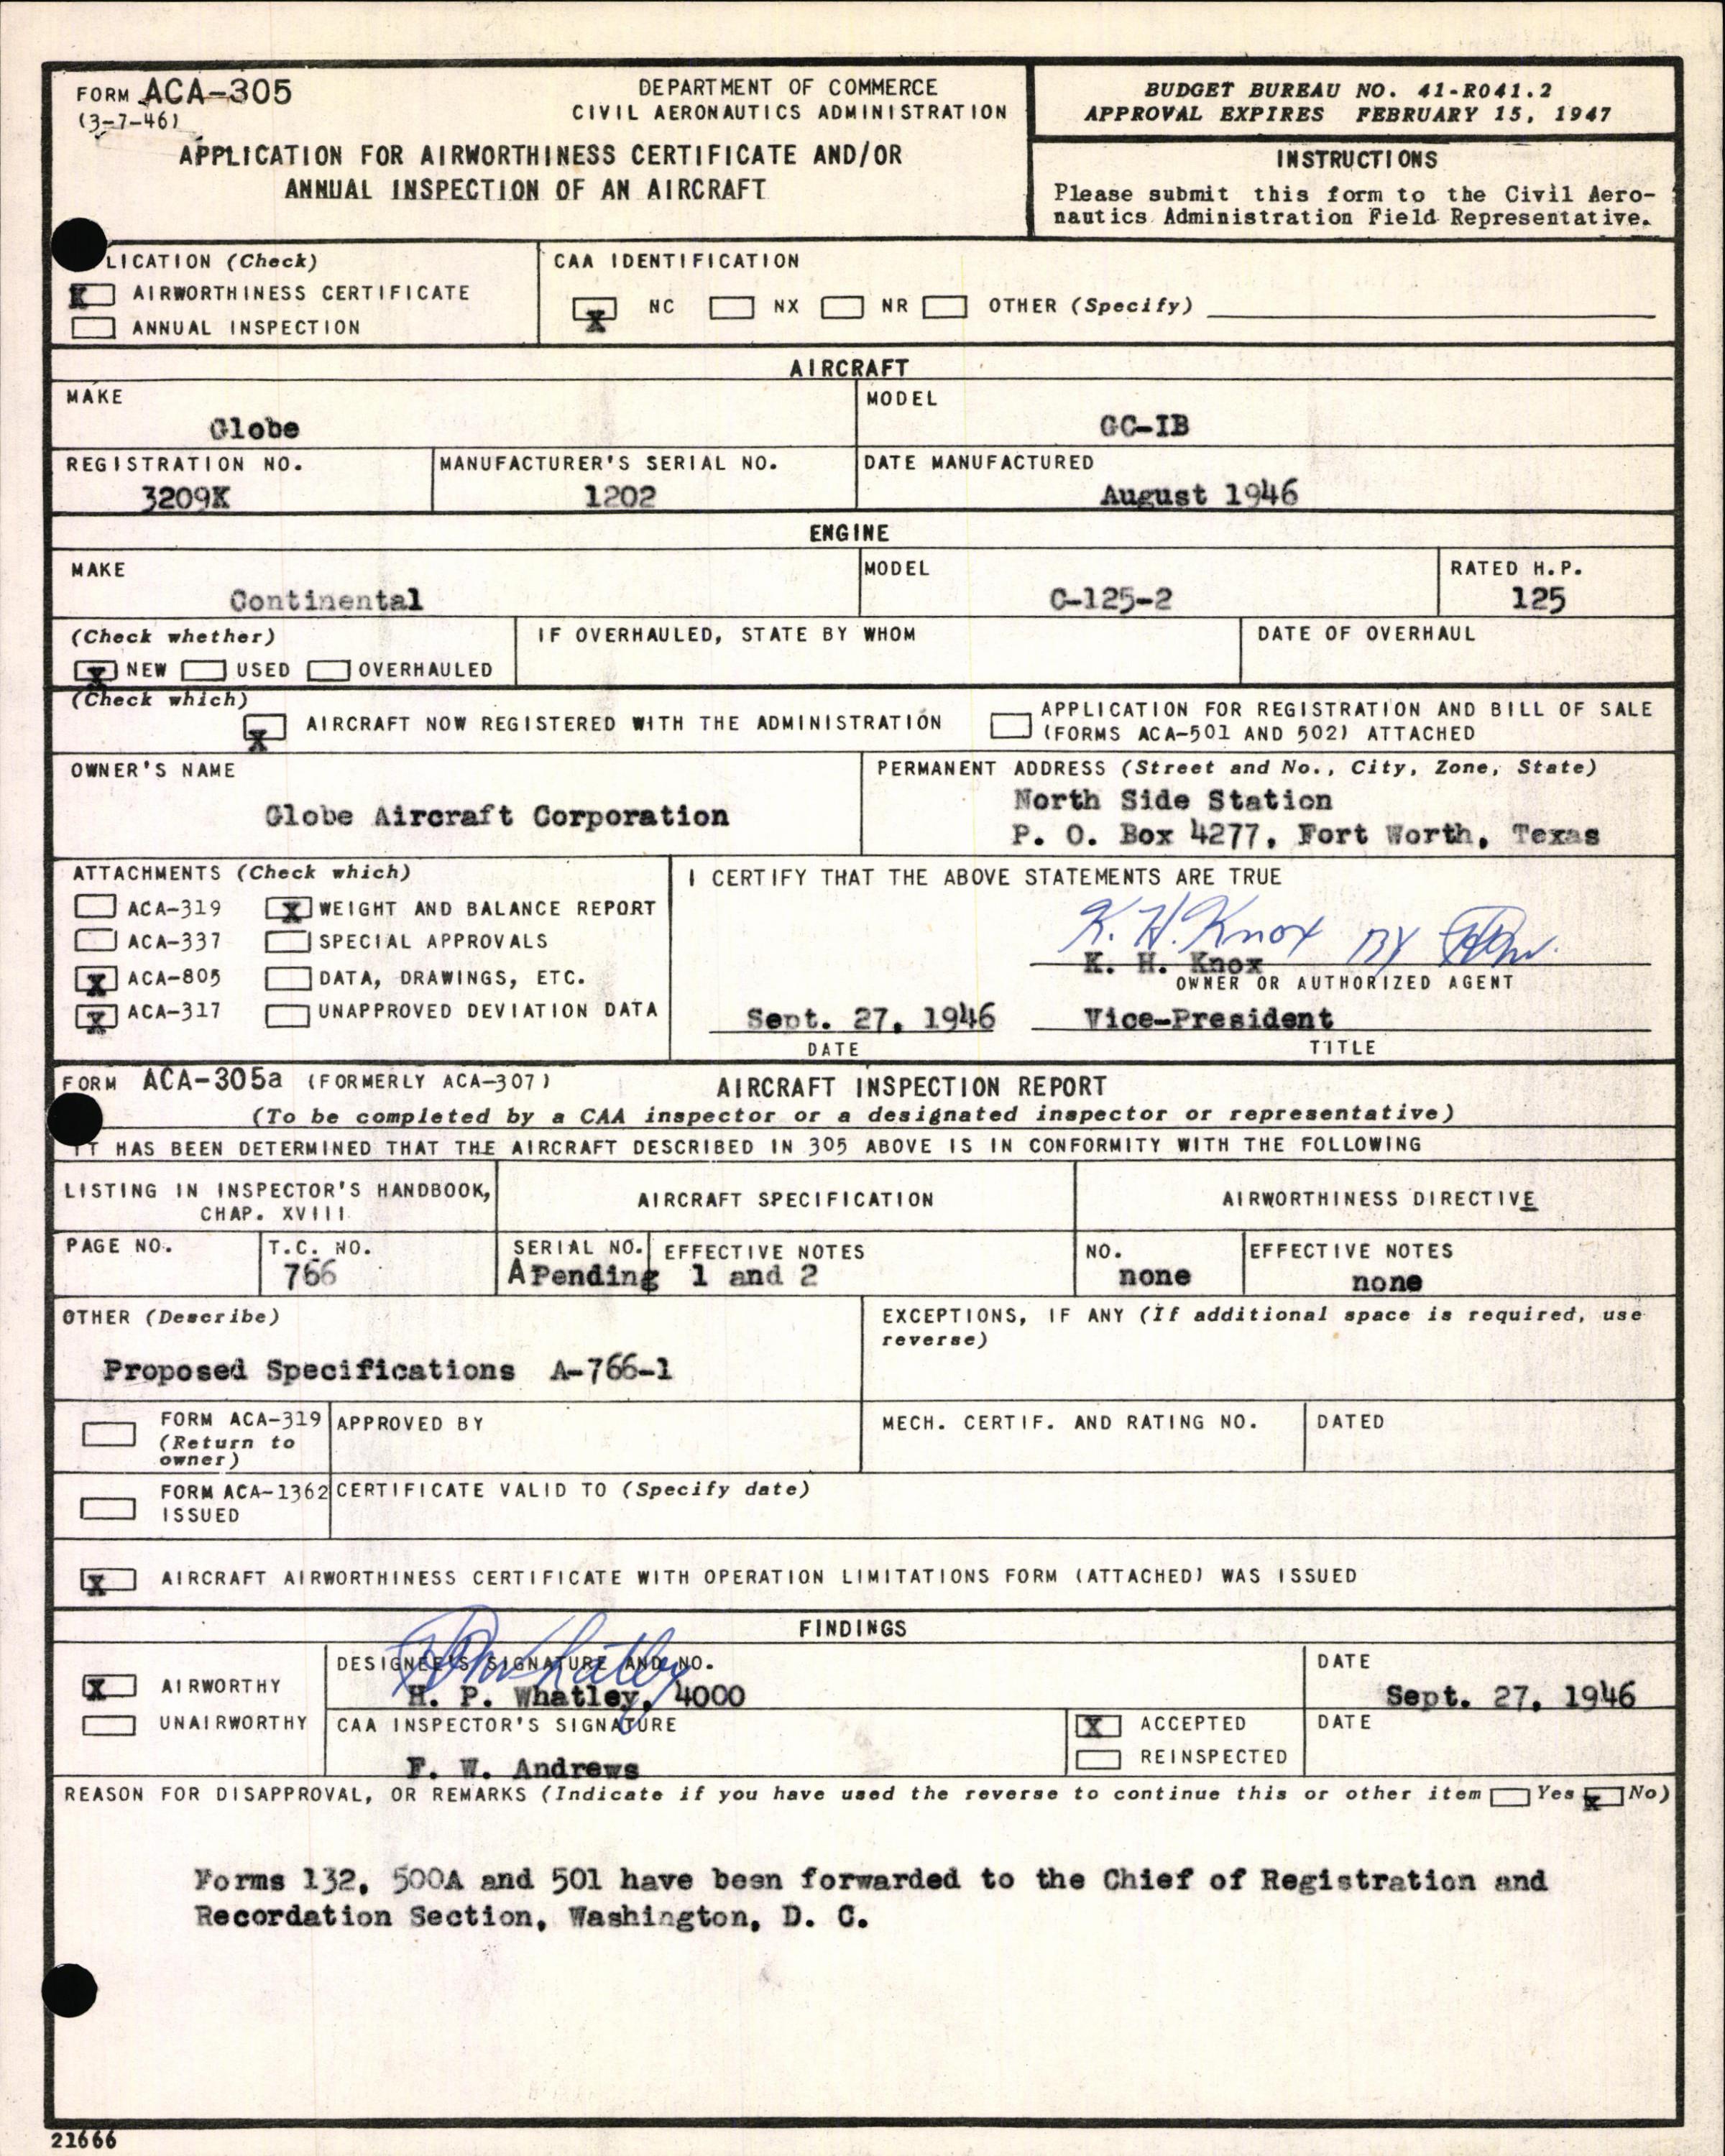 FORM ACA-305
(3-7-46)
DEPARTMENT OF COMMERCE
CIVIL AERONAUTICS ADMINISTRATION
APPLICATION FOR AIRWORTHINESS CERTIFICATE AND/OR
ANNUAL INSPECTION OF AN AIRCRAFT
BUDGET BUREAU NO. 41-R041.2
APPROVAL EXPIRES FEBRUARY 15, 1947
INSTRUCTIONS
Please submit this form to the Civil Aero-
nautics Administration Field Representative.
LICATION (Check)
X AIRWORTHINESS CERTIFICATE
ANNUAL INSPECTION
CAA IDENTIFICATION
X NC NX NR OTHER (Specify)
AIRCRAFT
MAKE
Globe
MODEL
GC-1B
REGISTRATION NO.
3209K
MANUFACTURER'S SERIAL NO.
1202
DATE MANUFACTURED
August 1946
ENGINE
MAKE
Continental
MODEL
C-125-2
RATED H.P.
125
(Check whether)
X NEW USED OVERHAULED
IF OVERHAULED, STATE BY WHOM
DATE OF OVERHAUL
(Check which)
X AIRCRAFT NOW REGISTERED WITH THE ADMINISTRATION
APPLICATION FOR REGISTRATION AND BILL OF SALE
(FORMS ACA-501 AND 502) ATTACHED
OWNER'S NAME
Globe Aircraft Corporation
PERMANENT ADDRESS (Street and No., City, Zone, State)
North Side Station
P. O. Box 4277, Fort Worth, Texas
ATTACHMENTS (Check which)
ACA-319 X WEIGHT AND BALANCE REPORT
ACA-337 SPECIAL APPROVALS
X ACA-805 DATA, DRAWINGS, ETC.
X ACA-317 UNAPPROVED DEVIATION DATA
I CERTIFY THAT THE ABOVE STATEMENTS ARE TRUE
K. H. Knox BY
K. H. Knox
OWNER OR AUTHORIZED AGENT
Sept. 27, 1946 Vice-President
DATE TITLE
FORM ACA-305a (FORMERLY ACA-307) AIRCRAFT INSPECTION REPORT
(To be completed by a CAA inspector or a designated inspector or representative)
IT HAS BEEN DETERMINED THAT THE AIRCRAFT DESCRIBED IN 305 ABOVE IS IN CONFORMITY WITH THE FOLLOWING
LISTING IN INSPECTOR'S HANDBOOK,
CHAP. XVIII
AIRCRAFT SPECIFICATION
AIRWORTHINESS DIRECTIVE
PAGE NO.
T.C. NO.
766
SERIAL NO.
A Pending
EFFECTIVE NOTES
1 and 2
NO.
none
EFFECTIVE NOTES
none
OTHER (Describe)
Proposed Specifications A-766-1
EXCEPTIONS, IF ANY (If additional space is required, use
reverse)
FORM ACA-319
(Return to
owner)
APPROVED BY
MECH. CERTIF. AND RATING NO.
DATED
FORM ACA-1362
ISSUED
CERTIFICATE VALID TO (Specify date)
X AIRCRAFT AIRWORTHINESS CERTIFICATE WITH OPERATION LIMITATIONS FORM (ATTACHED) WAS ISSUED
FINDINGS
X AIRWORTHY
UNAIRWORTHY
DESIGNEE'S SIGNATURE AND NO.
HPWhatley
H. P. Whatley, 4000
DATE
Sept. 27, 1946
CAA INSPECTOR'S SIGNATURE
F. W. Andrews
X ACCEPTED
REINSPECTED
DATE
REASON FOR DISAPPROVAL, OR REMARKS (Indicate if you have used the reverse to continue this or other item Yes X No)
Forms 132, 500A and 501 have been forwarded to the Chief of Registration and
Recordation Section, Washington, D. C.
21666